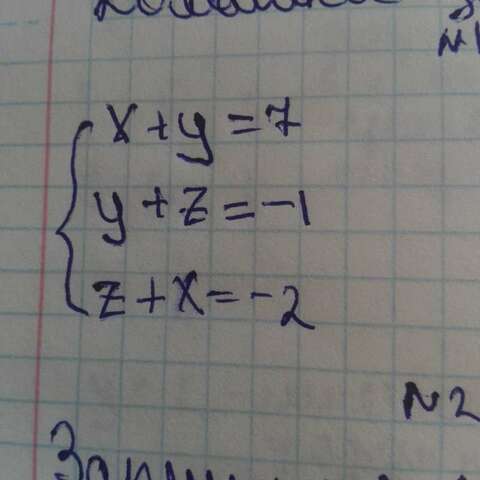 №1
x + y = 7
y + z = -1
z + x = -2
№2